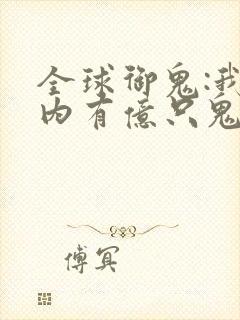 全球御鬼:我
内有億只鬼
傅冥